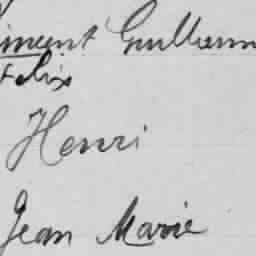 Vincent Guillaum
Felix
Henri
Jean Marie